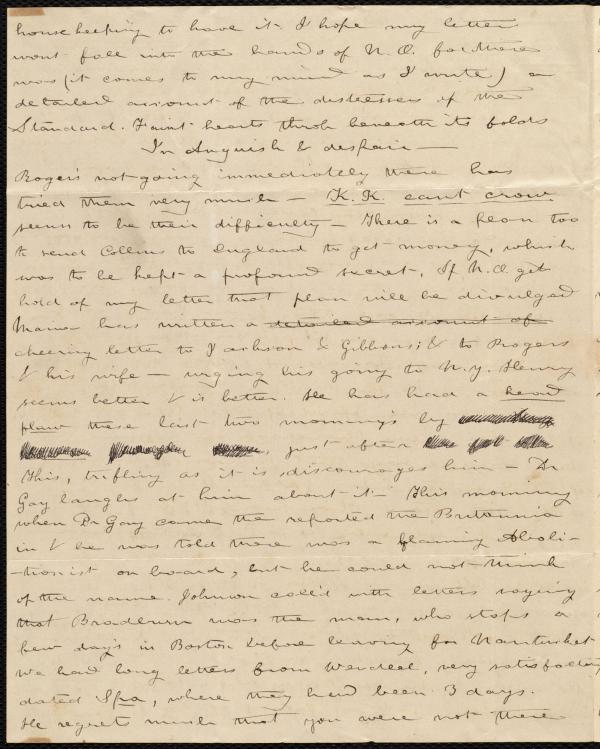 housekeeping to have it. I hope my letter
wont fall into the hands of N.O. for there
was (it comes to my mind as I write) a
detailed account of the distresses of the
Standard. Faint hearts throb beneath its folds
In Anguish & despair —
Rogers not going immediately there has
tried them very much — K.K. cant crow
seems to be their difficulty — There is a plan too
to send Collins to England to get money, which
was to be kept a profound secret. If N.O. gets
hold of my letter that plan will be divulged
Mama has written a detailed account of
cheering letter to Jackson & Gibbons; & to Rogers
& his wife — urging his going to N.Y. Henry
seems better & is better. He has had a
these last two mornings by
just after
This, trifling as it is, discourages him — Dr
Gay laughs at him about it — This morning
when Dr Gay came he reported the Britannia
in & he was told there was a flaming Aboli-
-tionist on board, but he could not think
of the name. Johnson call'd with letters saying
that Bradburn was the man, who stops a
few days in Boston before leaving for Nantucket
We had long letters from Wendell, very satisfactory
dated Spa, where they had been 3 days.
He regrets much that you were not there